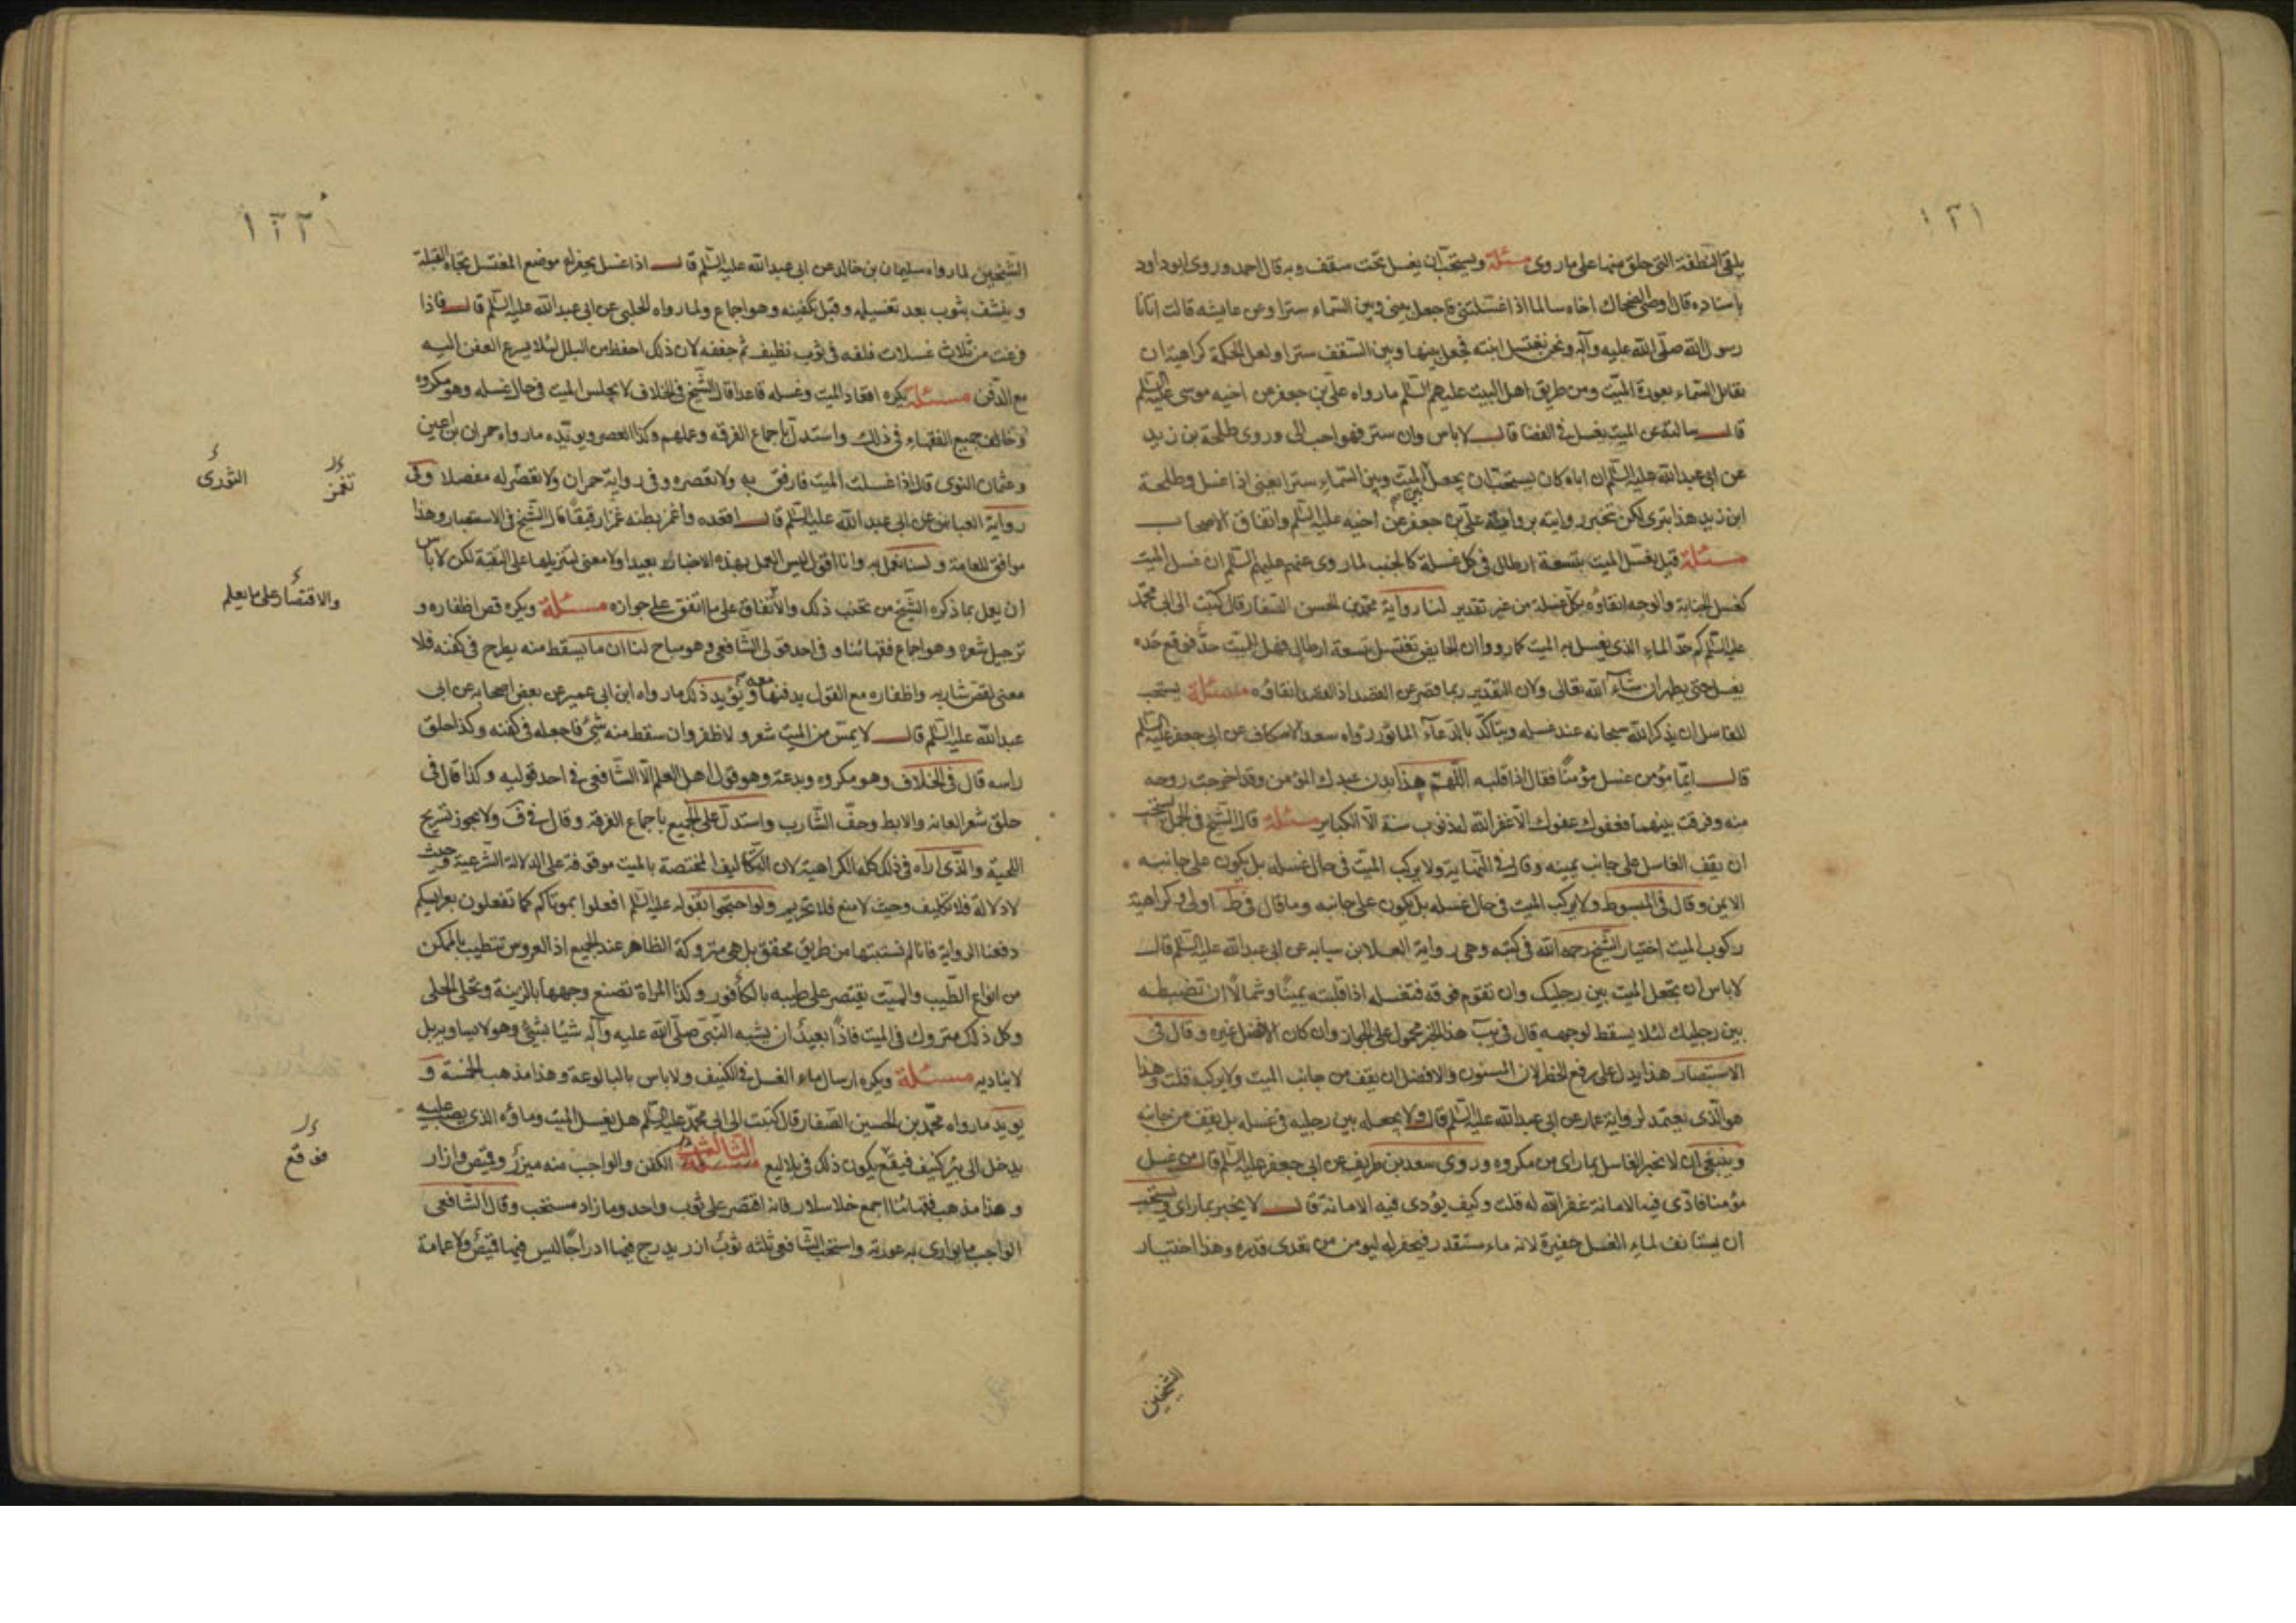 ١٢١
يلقى النطفة التى خلق منها على ما روى مسئلة ويستحب ان يغسل تحت سقف وبه قال احمد وروى ابو داود
باسناده قال اوصى الضحاك اخاه سالما اذا غسلتنى فاجعل بينى وبين السماء سترا وعن عايشه قالت اتانا
رسول الله صلى الله عليه وآله ونحن نغسل ابنته فجعل بينها وبين السقف سترا ولعل الحكمة كراهية ان
تقابل السماء بعورة الميت ومن طريق اهل البيت عليهم السلم ما رواه على بن جعفر عن اخيه موسى عليه السلم
قال سالته عن الميت يغسل فى الفضا قال لا باس وان ستر فهو احب الى وروى طلحة بن زيد
عن ابى عبد الله عليه السلم ان اباه كان يستحب ان يجعل بين الميت وبين السماء سترا يعنى اذا غسل وطلحة
ابن زيد هذا بترى لكن تنجبر روايته برواية على بن جعفر عن اخيه عليه السلم واتفاق الاصحاب
مسئلة قيل يغسل الميت بتسعة ارطال فى كل غسلة كالجنب لما روى عنهم عليهم السلم ان غسل الميت
كغسل الجنابة والوجه انقاؤه بكل غسلة من غير تقدير لنا رواية محمد بن الحسن الصفار قال كتبت الى ابى محمد
عليه السلم كم حد الماء الذى يغسل به الميت كما رووا ان الحايض تغتسل بتسعة ارطال فهل للميت حد فوقع حده
يغسل حتى يطهر ان شاء الله تعالى ولان التقدير ربما قصر عن القصد اذ القصد انقاؤه مسئلة يستحب
للغاسل ان يذكر الله سبحانه عند غسله ويتاكد بالدعاء الماثور رواه سعد الاسكاف عن ابى جعفر عليه السلم
قال ايما مؤمن غسل مؤمنا فقال اذا قلبه اللهم هذا بدن عبدك المؤمن وقد اخرجت روحه
منه وفرقت بينهما فعفوك عفوك الا غفر الله له ذنوب سنة الا الكباير مسئلة قال الشيخ فى الجمل يستحب
ان يقف الغاسل على جانب يمينه وقال فى النهاية ولا يركب الميت فى حال غسله بل يكون على جانبه
الايمن وقال فى المبسوط ولا يركب الميت فى حال غسله بل يكون على جانبه وما قال فى ط اولى وكراهية
ركوب الميت اختيار الشيخ رحمه الله فى كتبه وهى رواية العلا بن سيابه عن ابى عبد الله عليه السلم قال
لا باس ان تجعل الميت بين رجليك وان تقوم فوقه فتغسله اذا قلبته يمينا وشمالا ان تضبطه
بين رجليك لئلا يسقط لوجهه قال فى يب هذا الخبر محمول على الجواز وان كان الافضل غيره وقال فى
الاستبصار هذا يدل على رفع الحظر لان المسنون والافضل ان يقف من جانب الميت ولا يركبه قلت وهذا
هو الذى يعتمد لرواية عمار عن ابى عبد الله عليه السلم قال ولا يجعله بين رجليه فى غسله بل يقف من جانبه
وينبغى ان لا يخبر الغاسل بما راى من مكروه وروى سعد بن طريف عن ابى جعفر عليه السلم قال من غسل
مؤمنا فادى فيه الامانة غفر الله له قلت وكيف يؤدى فيه الامانة قال لا يخبر بما راى ويستحب
ان يستانف لماء الغسل حفيرة لانه ماء مستقذر فيحفر له ليومن من تعدى قذره وهذا اختيار
الشيخين
١٢٢
الشيخين لما رواه سليمان بن خالد عن ابى عبد الله عليه السلم قال اذا غسل يحفر له موضع المغتسل تجاه القبلة
وينشف بثوب بعد تغسيله وقبل تكفينه وهو اجماع ولما رواه الحلبى عن ابى عبد الله عليه السلم قال فاذا
فرغت من ثلاث غسلات فلفه فى ثوب نظيف ثم جففه لان ذلك احفظ من البلل لئلا يسرع العفن اليه
مع الدفن مسئلة يكره اقعاد الميت وغسله قاعدا قال الشيخ فى الخلاف لا يجلس الميت فى حال غسله وهو مكروه
وخالف جميع الفقهاء فى ذلك واستدل باجماع الفرقه وعملهم وكذا العصر ويويده ما رواه حمران بن اعين
وعثمان النوى قال اذا غسلت الميت فارفق به ولا تعصره وفى رواية حمران ولا تعصر له مفصلا وفى
رواية العباس عن ابى عبد الله عليه السلم قال اقعده واغمز بطنه غمزا رفيقا قال الشيخ فى الاستبصار وهذا
موافق للعامة ولسنا نعمل به وانا اقول ليس العمل بهذه الاخبار بعيدا ولا معنى لتنزيلها على التقية لكن لا باس
ان يعمل بما ذكره الشيخ من تجنب ذلك والاتفاق على ما اتفق على جوازه مسئلة ويكره قص اظفاره و
ترجيل شعره وهو اجماع فقهائنا و فى احد قولى الشافعى وهو مباح لنا ان ما يسقط منه يطرح فى كفنه فلا
معنى لقص شاربه واظفاره مع القول بدفنها معه ويؤيد ذلك ما رواه ابن ابى عمير عن بعض اصحابه عن ابى
عبد الله عليه السلم قال لا يمس من الميت شعر ولا ظفر وان سقط منه شئ فاجعله فى كفنه وكذا حلق
راسه قال فى الخلاف وهو مكروه وبدعة وهو قول اهل العلم الا الشافعى فى احد قوليه وكذا قال فى
حلق شعر العانه والابط وحف الشارب واستدل على الجميع باجماع الفرقه وقال فى ف ولا يجوز تسريح
اللحية والذى اراه فى ذلك كله الكراهية لان التكاليف المختصة بالميت موقوفة على الدلالة الشرعية وحيث
لا دلالة فلا تكليف وحيث لا منع فلا تحريم ولو احتجوا بقوله عليه السلم افعلوا بموتاكم كما تفعلون بعرايسكم
دفعنا الرواية فانا لم نستثبتها من طريق محقق بل هى متروكة الظاهر عند الجميع اذ العروس تتطيب بالممكن
من انواع الطيب والميت يقتصر على طيبه بالكافور وكذا المراة تصنع وجهها بالزينة وتحلى الحلى
وكل ذلك متروك فى الميت فاذا بعيد ان يشبه النبى صلى الله عليه وآله شيئا بشئ وهو لا يساويه بل
لا يناديه مسئلة ويكره ارسال ماء الغسل فى الكنيف ولا باس بالبالوعة وهذا مذهب الخمسة و
يويد ما رواه محمد بن الحسين الصفار قال كتبت الى ابى محمد عليه السلم هل يغسل الميت وماؤه الذى يصب عليه
يدخل الى بئر كنيف فيقع يكون ذلك فى بلاليع الثالث مسئلة الكفن والواجب منه ميزر وقميص وازار
وهذا مذهب فقهائنا اجمع خلا سلار فانه اقتصر على ثوب واحد وما زاد مستحب وقال الشافعى
الواجب ما يوارى به عورته واستحب الشافعى ثلثه ثوب ازر يدرج فيها ادراجا ليس فيها قميص ولا عمامة
الثورى
تغمز
والاقتصار على ما يعلم
فوقع